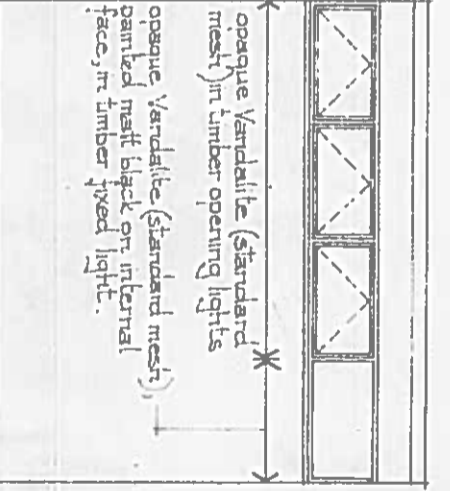 opaque Vandalite (standard
mesh) in timber opening lights
opaque Vandalite (standard mesh),
painted matt black on internal
face, in timber fixed light.